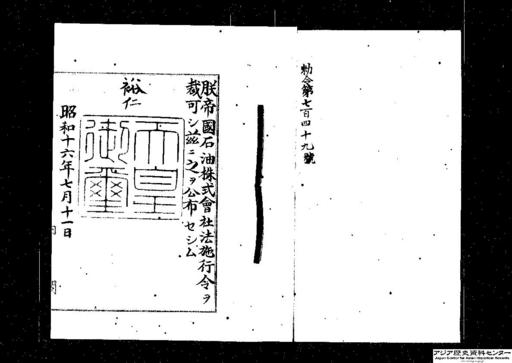 勅令第七百四十九號
朕帝國石油株式會社法施行令ヲ
裁可シ茲ニ之ヲ公布セシム
裕仁
天皇
御璽
昭和十六年七月十一日
アジア歴史資料センター
Japan Center for Asian Historical Records